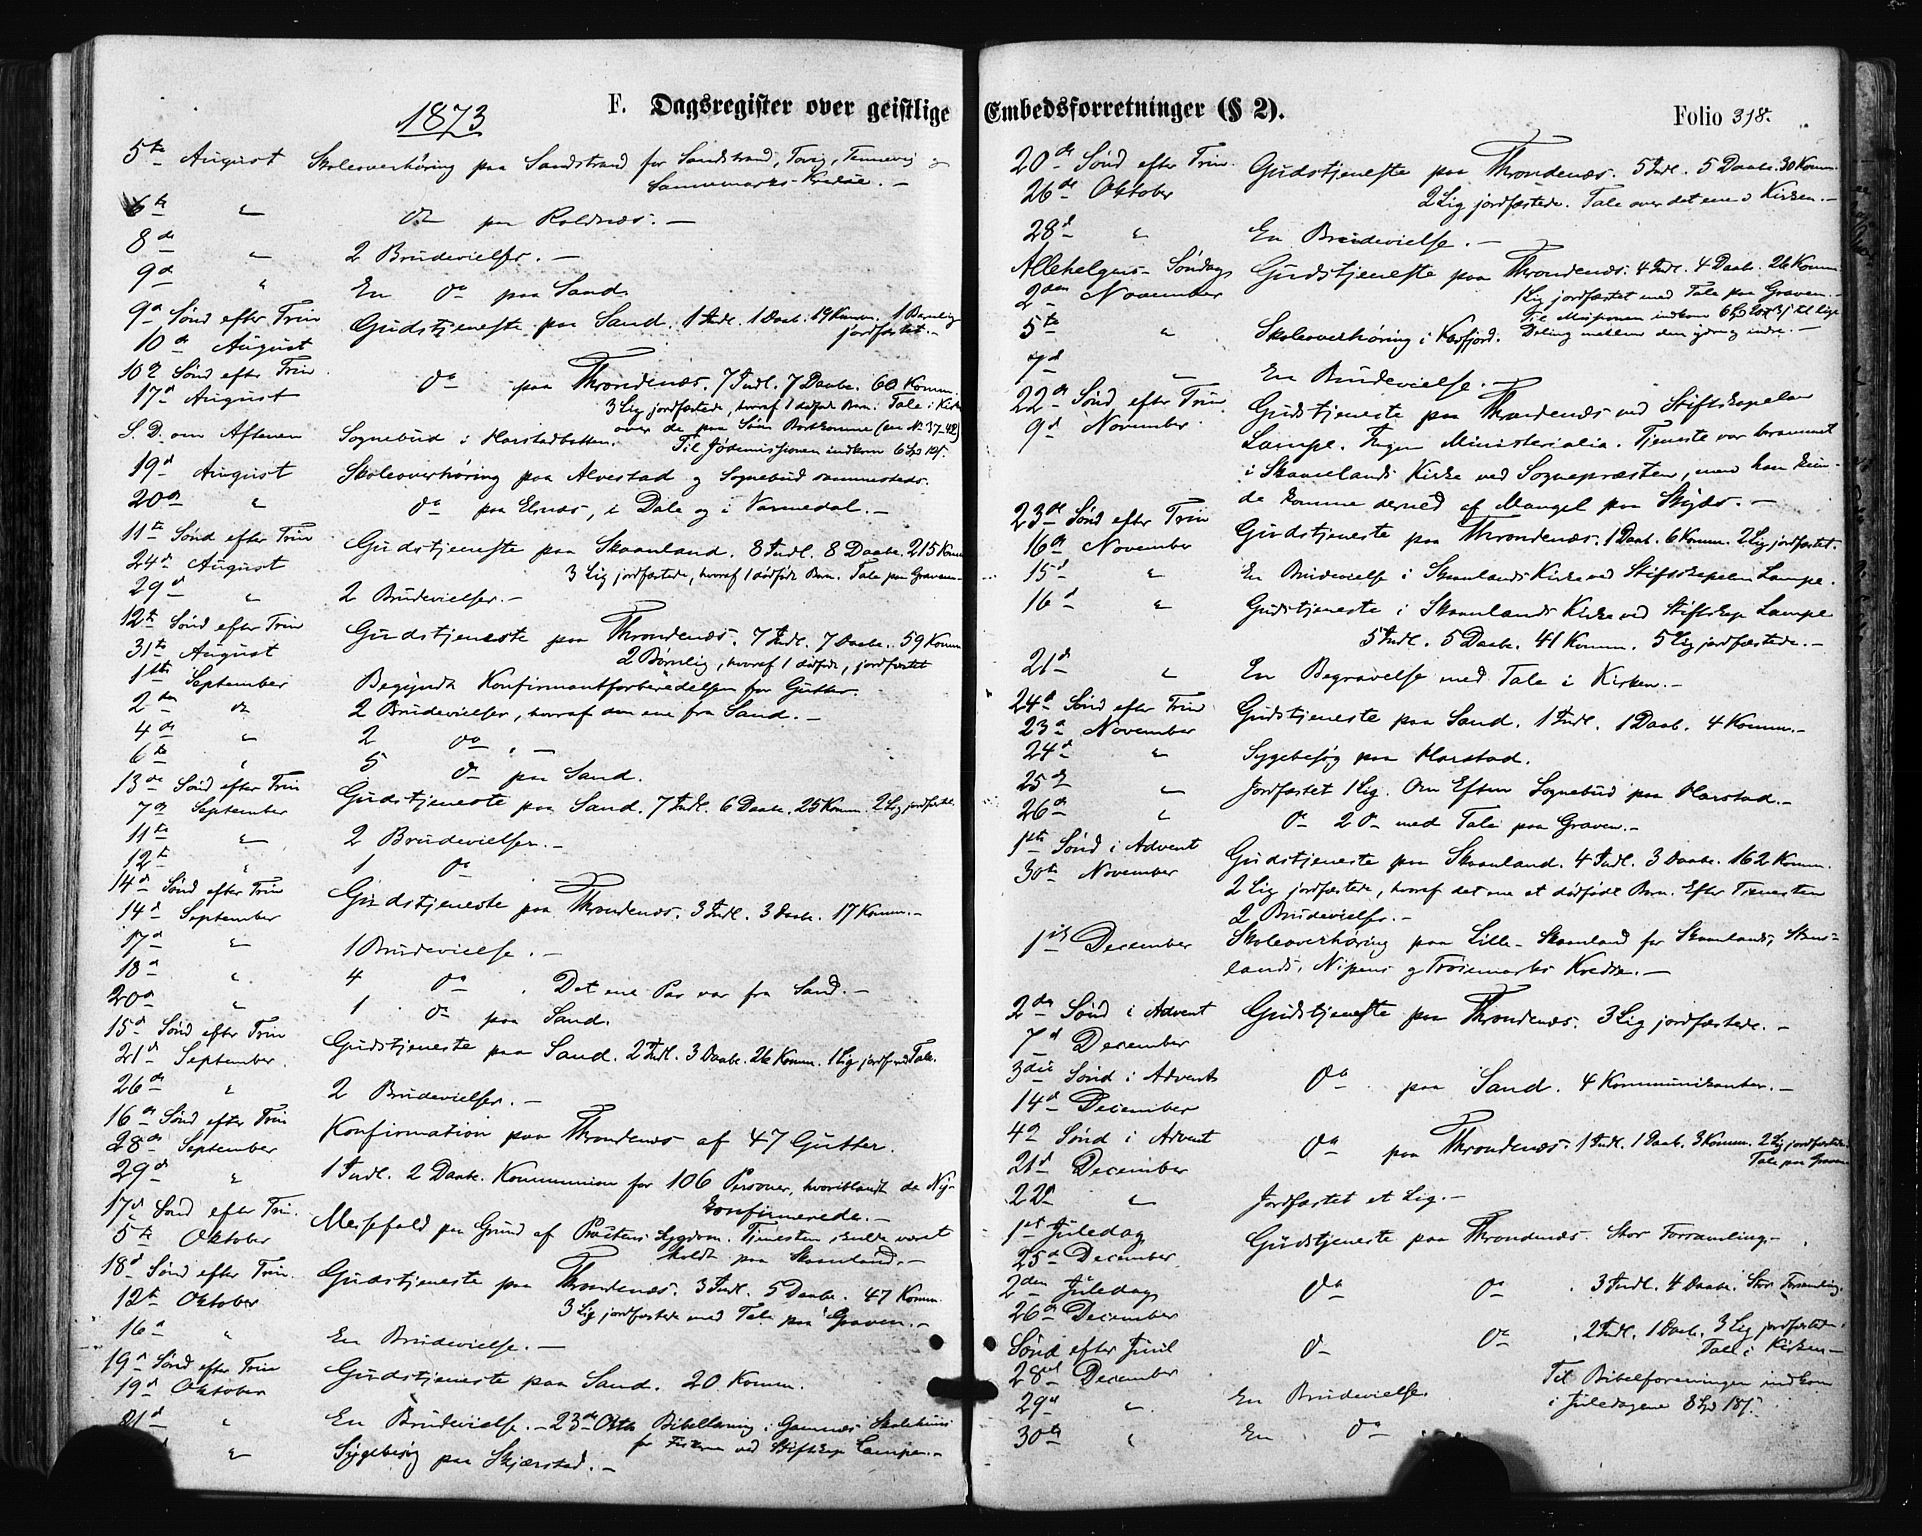 F. Dagsregister over geistlige
1873
5te August Skoleoverhøring paa Sandstrand for Sandstrand, Tovig, Tennevig og
Kredse. -
6te " do paa Roldnæs. -
8de " 2 Brudevielser. -
9de " En do paa Sand.
9de Sønd efter Trin Gudstjeneste paa Sand. 1 Indl. 1 Daab. 19 Komm. 1 Barnelig
10de August jordfæstet. -
10de Sønd efter Trin. do paa Throndenæs. 7 Indl. 7 Daabe. 60 Komm.
17de August 3 Lig jordfæstede, hvoraf 1 dødfødt Barn. Tale i Kirken
over de paa Søen Bortkomne (en No 37-42)
S. D. om Aftenen Sognebud i Harstadbotten. Til Jødemissionen indkom
19de August Skoleoverhøring paa Alvestad og Sognebud sammesteds.
20de " do paa Elnæs, i Dale og i Varmedal. -
11te Sønd efter Trin Gudstjeneste paa Skaanland. 8 Indl. 8 Daabe. 215 Komm
24de August 3 Lig jordfæstede, hvoraf 1 dødfødt Barn. Tale paa Graven. -
29de " 2 Brudevielser. -
12te Sønd efter Trin Gudstjeneste paa Throndenæs. 7 Indl. 7 Daabe. 59 Komm
31te August 2 Børnelig, hvoraf 1 dødfødt, jordfæstet
1ste September Begyndt Konfirmantforberedelsen for Gutter.
2den do 2 Brudevielser, hvoraf den ene fra Sand. -
4de " 2 do. -
6te " 5 do paa Sand.
13de Sønd efter Trin Gudstjeneste paa Sand. 7 Indl. 6 Daabe. 25 Komm. 2 Lig jordfæstet.
7de September
11te " 2 Brudevielser. -
12te " 1 do
14de Sønd efter Trin Gudstjeneste paa Throndenæs. 3 Indl. 3 Daabe. 17 Komm. -
14de September
17de " 1 Brudevielse. -
18de " 4 do. Det ene Par var fra Sand. -
20de " 1 do paa Sand.
15de Sønd efter Trin Gudstjeneste paa Sand. 2 Indl. 3 Daabe. 26 Komm. 1 Lig jordf. med Tale.
21de September.
26de " 2 Brudevielser. -
16de Sønd efter Trin Konfirmation paa Throndenæs af 47 Gutter.
28de September
29de " 1 Indl. 2 Daabe. Kommunion for 106 Personer, hvoriblandt de Ny-
konfirmerede. -
17de Sønd efter Trin. Messefald paa Grund af Præstens Sygdom. Tjenesten skulde været
5te Oktober holdt paa Skaanland. -
18de Sønd efter Trin. Gudstjeneste paa Throndenæs. 3 Indl. 5 Daabe. 47 Komm.
12te Oktober 3 Lig jordfæstede med Tale paa Graven. -
16de " En Brudevielse. -
19de Sønd efter Trin Gudstjeneste paa Sand. 20 Komm.
19de Oktober
21de " En Brudevielse. - 23de Oktb. Bibellæsning i Skolehuus
for Fiskerne ved Stiftskap Lampe. -
" Sygebesøg paa Skjærstad. -
Embedsforretninger (§ 2).
Folio 318.
20de Sønd efter Trin. Gudstjeneste paa Throndenæs. 5 Indl. 5 Daabe. 30 Komm.
26de Oktober 2 Lig jordfæstede. Tale over det ene i Kirken. -
28de " En Brudevielse. -
Allehelgens-Søndag Gudstjeneste paa Throndenæs. 4 Indl. 4 Daabe. 26 Komm
2den November 1 Lig jordfæstet med Tale paa Graven. -
Til Missionen indkom til lige
5te " Skoleoverhøring i Kasfjord. Deling mellem den ydre og indre. -
7de " En Brudevielse. -
22de Sønd efter Trin. Gudstjeneste paa Throndenæs ved Stiftskapelan
9de November. Lampe. Ingen Ministerialia. Tjeneste var berammet
i Skaanlands Kirke ved Sognepræsten, men han kun-
de komme derned af Mangel paa Skyds. -
23de Sønd efter Trin Gudstjeneste paa Throndenæs. 1 Daab. 6 Komm. 2 Lig jordfæstet.
16de November
15de " En Brudevielse i Skaanlands Kirke ved Stiftskapelan Lampe.
16de " Gudstjeneste i Skaanlands Kirke ved Stiftskap Lampe
5 Indl. 5 Daabe. 41 Komm. 5 Lig jordfæstede. -
21de " En Begravelse med Tale i Kirken. -
24de Sønd efter Trin Gudstjeneste paa Sand. 1 Indl. 1 Daab. 4 Komm. -
23de November
24de " Sygebesøg paa Harstad.
25de " Jordfæstet 1 Lig. Om Eftm Sognebud paa Harstad. -
26de " do 2 do med Tale paa Graven. -
1ste Sønd i Advent Gudstjeneste paa Skaanland. 4 Indl. 3 Daabe. 162 Komm.
30te November 2 Lig jordfæstede, hvoraf det ene et dødfødt Barn. Efter Tjenesten
2 Brudevielser. -
1ste December Skoleoverhøring paa Lille-Skaanland for Skaanlands,
lands, Nipens og Kredse. -
2den Sønd i Advent Gudstjeneste paa Throndenæs. 3 Lig jordfæstede. -
7de December
3die Sønd i Advent do paa Sand. 4 Kommunikanter. -
14de December
4de Sønd i Advent do paa Throndenæs. 1 Indl. 1 Daab. 3 Komm. 2 Lig jordfæstede.
21de December Tale paa Graven
22de " Jordfæstet et Lig. -
1ste Juledag Gudstjeneste paa Throndenæs. Stor Forsamling. -
25de December
2den Juledag do do. 3 Indl. 4 Daabe. Stor Forsamling.
26de December
Sønd efter Juul do do. 2 Indl. 1 Daab. 3 Lig jordfæstede.
28de December Tale i Kirken -
29de " En Brudevielse. Til Bibelforeningen indkom
30te " En do i Juledagene